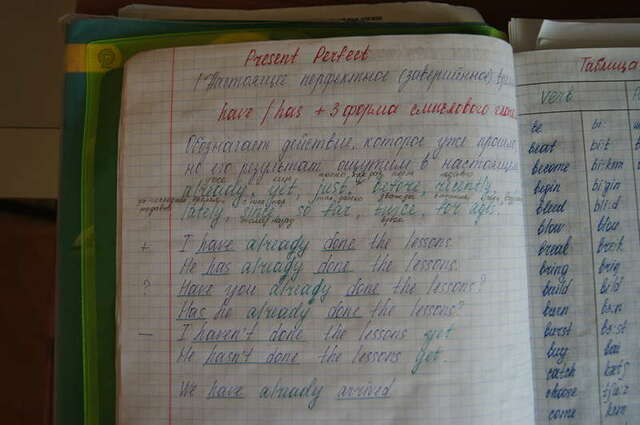 Present Perfect
Настоящее перфектное (завершённое)
have / has + 3 форма смыслового
Обозначает действие, которое уже прошло,
но его результат ощутим в настоящем
already, yet, just, before, recently
lately, since, so far, twice, for ages.
+ I have already done the lessons.
He has already done the lessons.
? Have you already done the lessons?
Has he already done the lessons?
— I haven't done the lessons yet
He hasn't done the lessons yet.
We have already arrived
Таблица
Verb
be bi:
beat bi:t
become
begin
bleed bli:d
blow
break
bring
build bild
burn
burst
buy bai
catch
choose
come